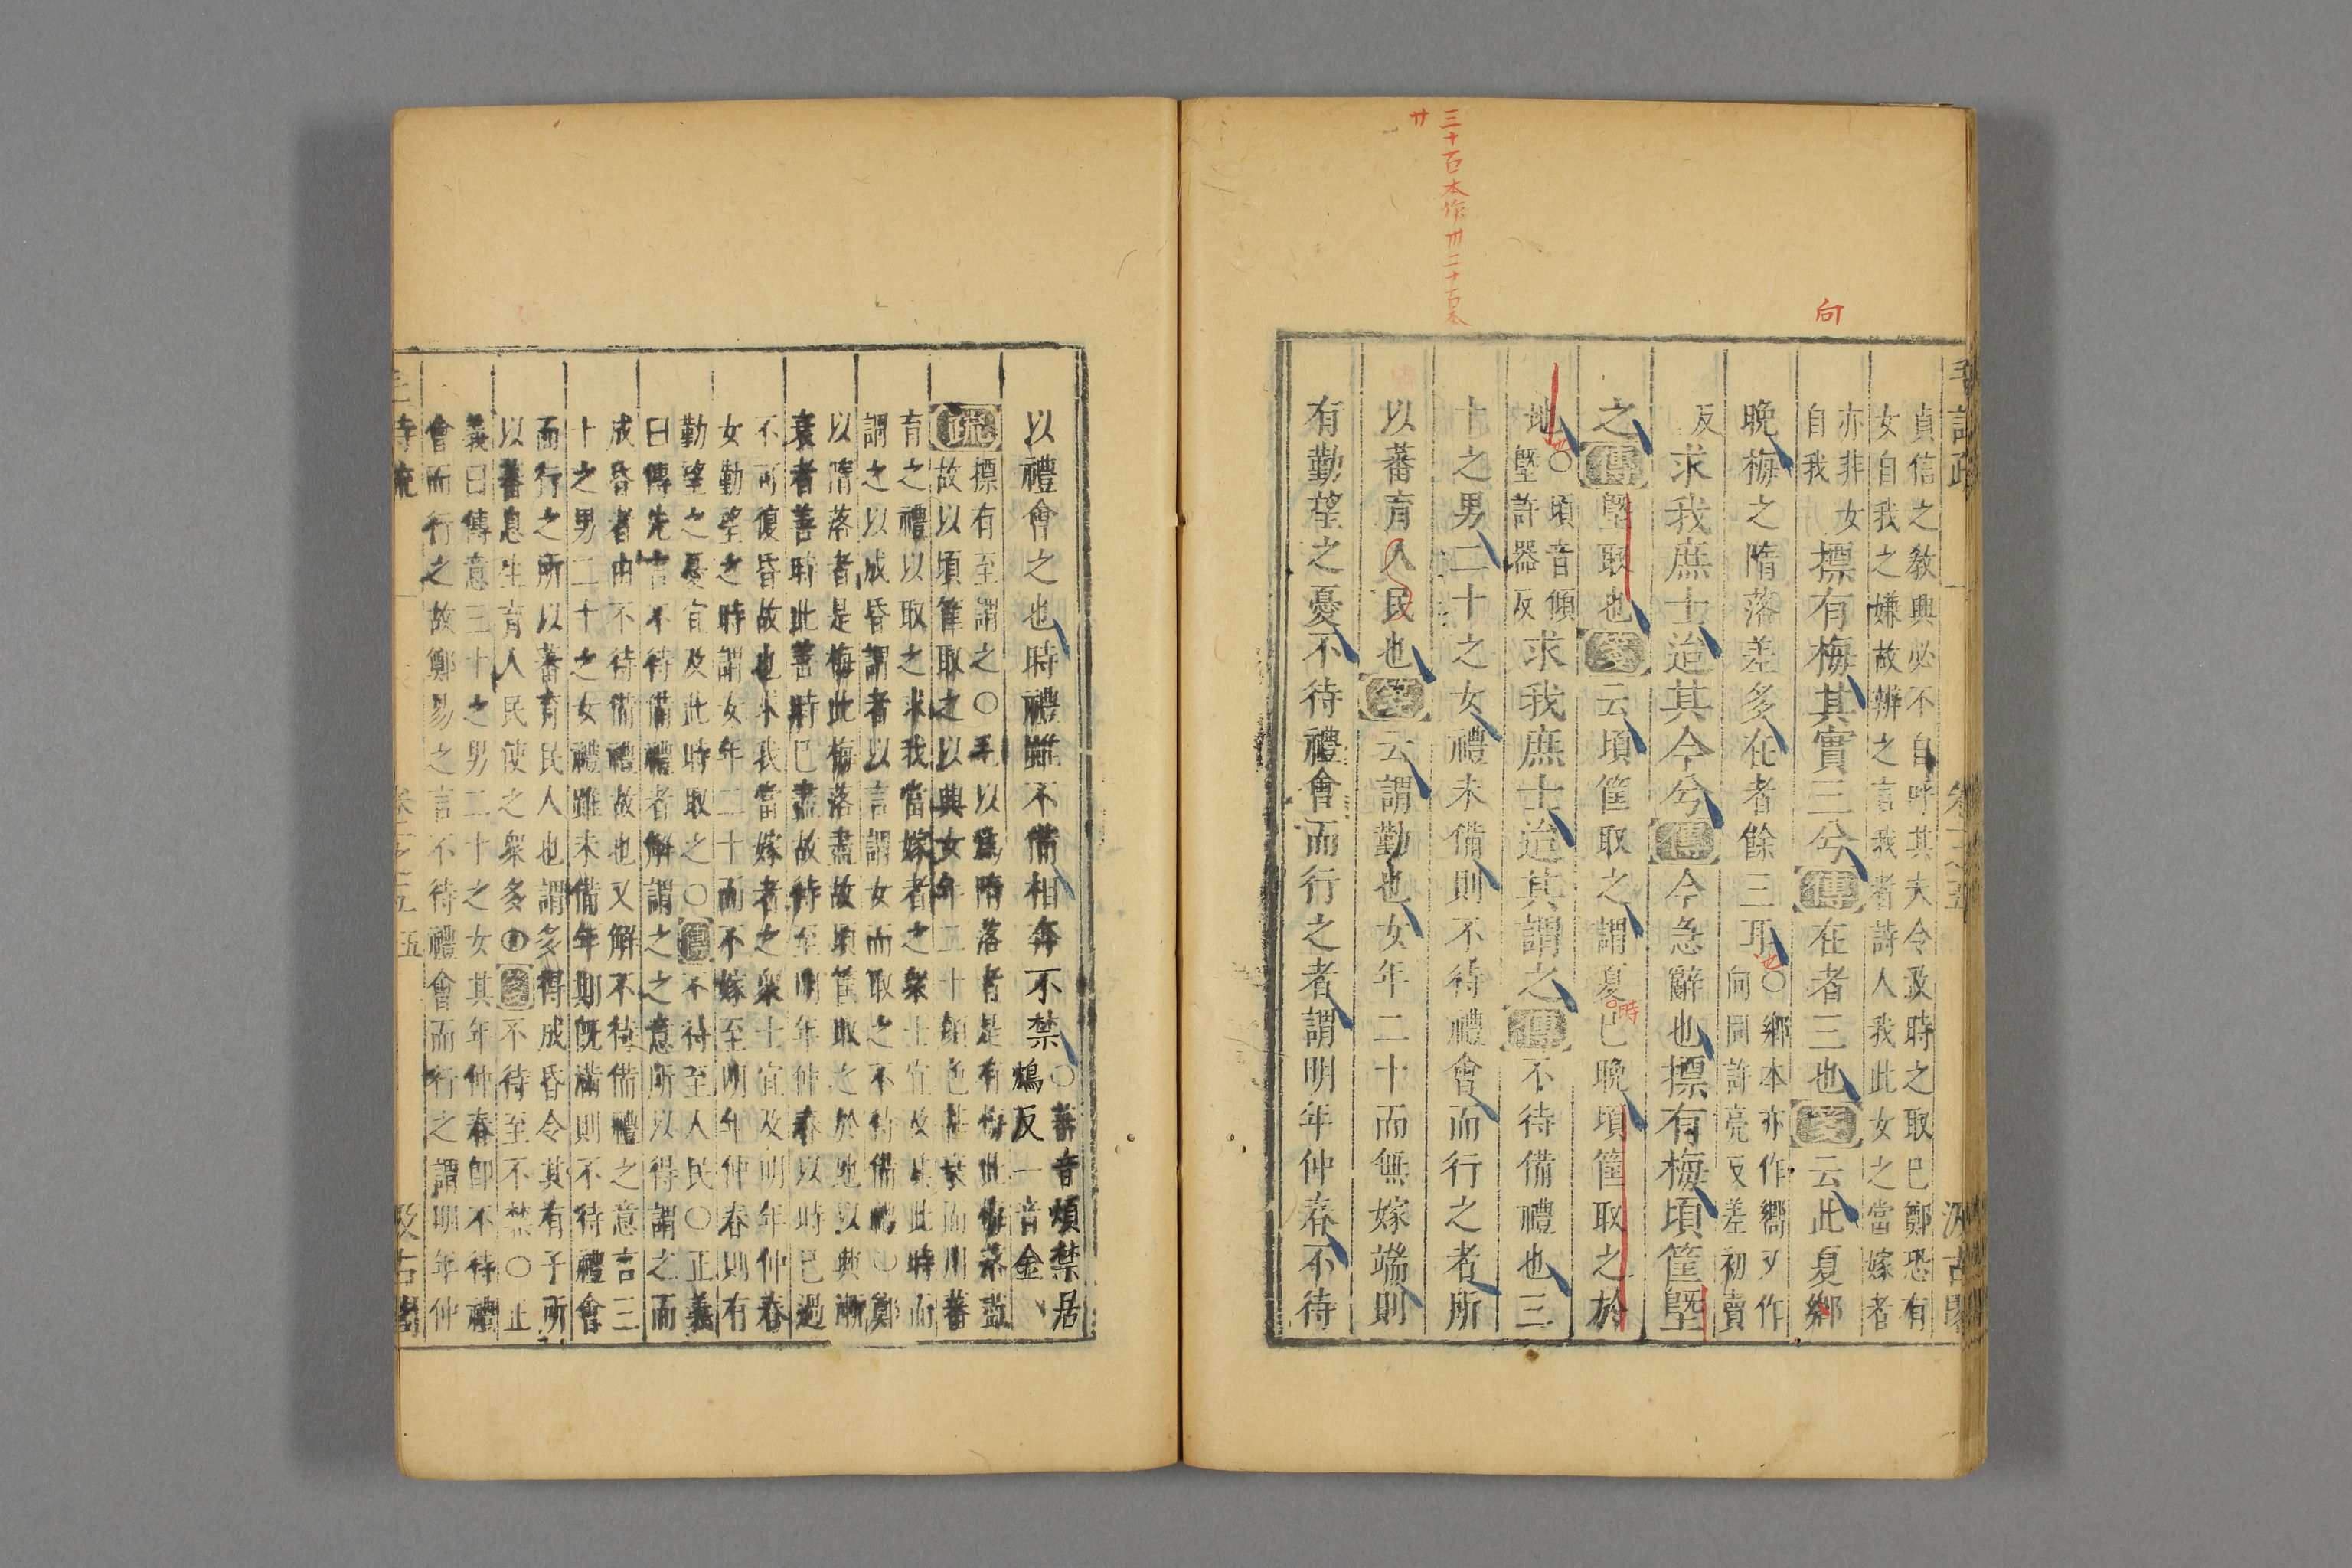 三十古本作卅二十古本
廿
向
毛詩疏
卷一之五
汲古閣
貞信之教興必不自呼其大令及時之取巳鄭恐有
女自我之嫌故辨之言我者詩人我此女之當嫁者
亦非女
自我
摽有梅其實三兮傳在者三也箋云此夏鄉
晚梅之隋落差多在者餘三耳
也
○鄉本亦作嚮又作
向同許亮反差初賣
反
求我庶士迨其今兮傳今急辭也摽有梅頃筐塈
之傳塈取也箋云頃筐取之謂夏巳晚頃筐取之於
時
地
也
○頃音傾
塈許器反
求我庶士迨其謂之傳不待備禮也三
十之男二十之女禮未備則不待禮會而行之者所
以蕃育人民也箋云謂勤也女年二十而無嫁端則
有勤望之憂不待禮會而行之者謂明年仲春不待
以禮會之也時禮雖不備相奔不禁
○蕃音煩禁居
鴆反一音金
疏
摽有至謂之○毛以爲隋落者是有梅此梅落盡
故以頃筐取之以興女年二十顔色甚衰而用蕃
育之禮以取之求我當嫁者之衆士宜及其此時而
謂之以成昏謂者以言謂女而取之不待備禮○鄭
以隋落者是梅此梅落盡故頃筐取之於地以興漸
衰者善時此善時巳盡故待至明年仲春以時巳過
不可復昏故也求我當嫁者之衆士宜及明年仲春
女勤望之時謂女年二十而不嫁至明年仲春則有
勤望之憂宜及此時取之○傳不待至人民○正義
曰傳先言不待備禮者解謂之之意所以得謂之而
成昏者由不待備禮故也又解不待備禮之意言三
十之男二十之女禮雖未備年期既滿則不待禮會
而行之所以蕃育民人也謂多得成昏令其有子所
以蕃息生育人民使之衆多○箋不待至不禁○正
義曰傳意三十之男二十之女其年仲春卽不待禮
會而行之故鄭易之言不待禮會而行之謂明年仲
毛詩疏
卷一之五
五
汲古閣